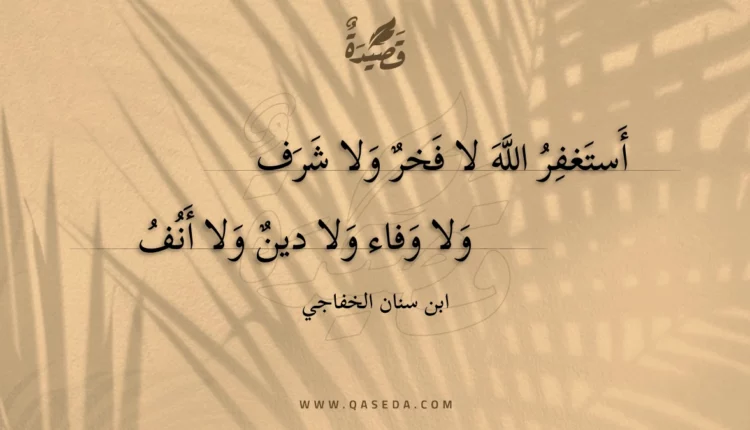 قَصِيْدَةٌ
أَستَغفِرُ اللَّهَ لا فَخرٌ وَلا شَرَف
وَلا وَفاء وَلا دينٌ وَلا أَنُفُ
ابن سنان الخفاجي
WWW.QASEDA.COM